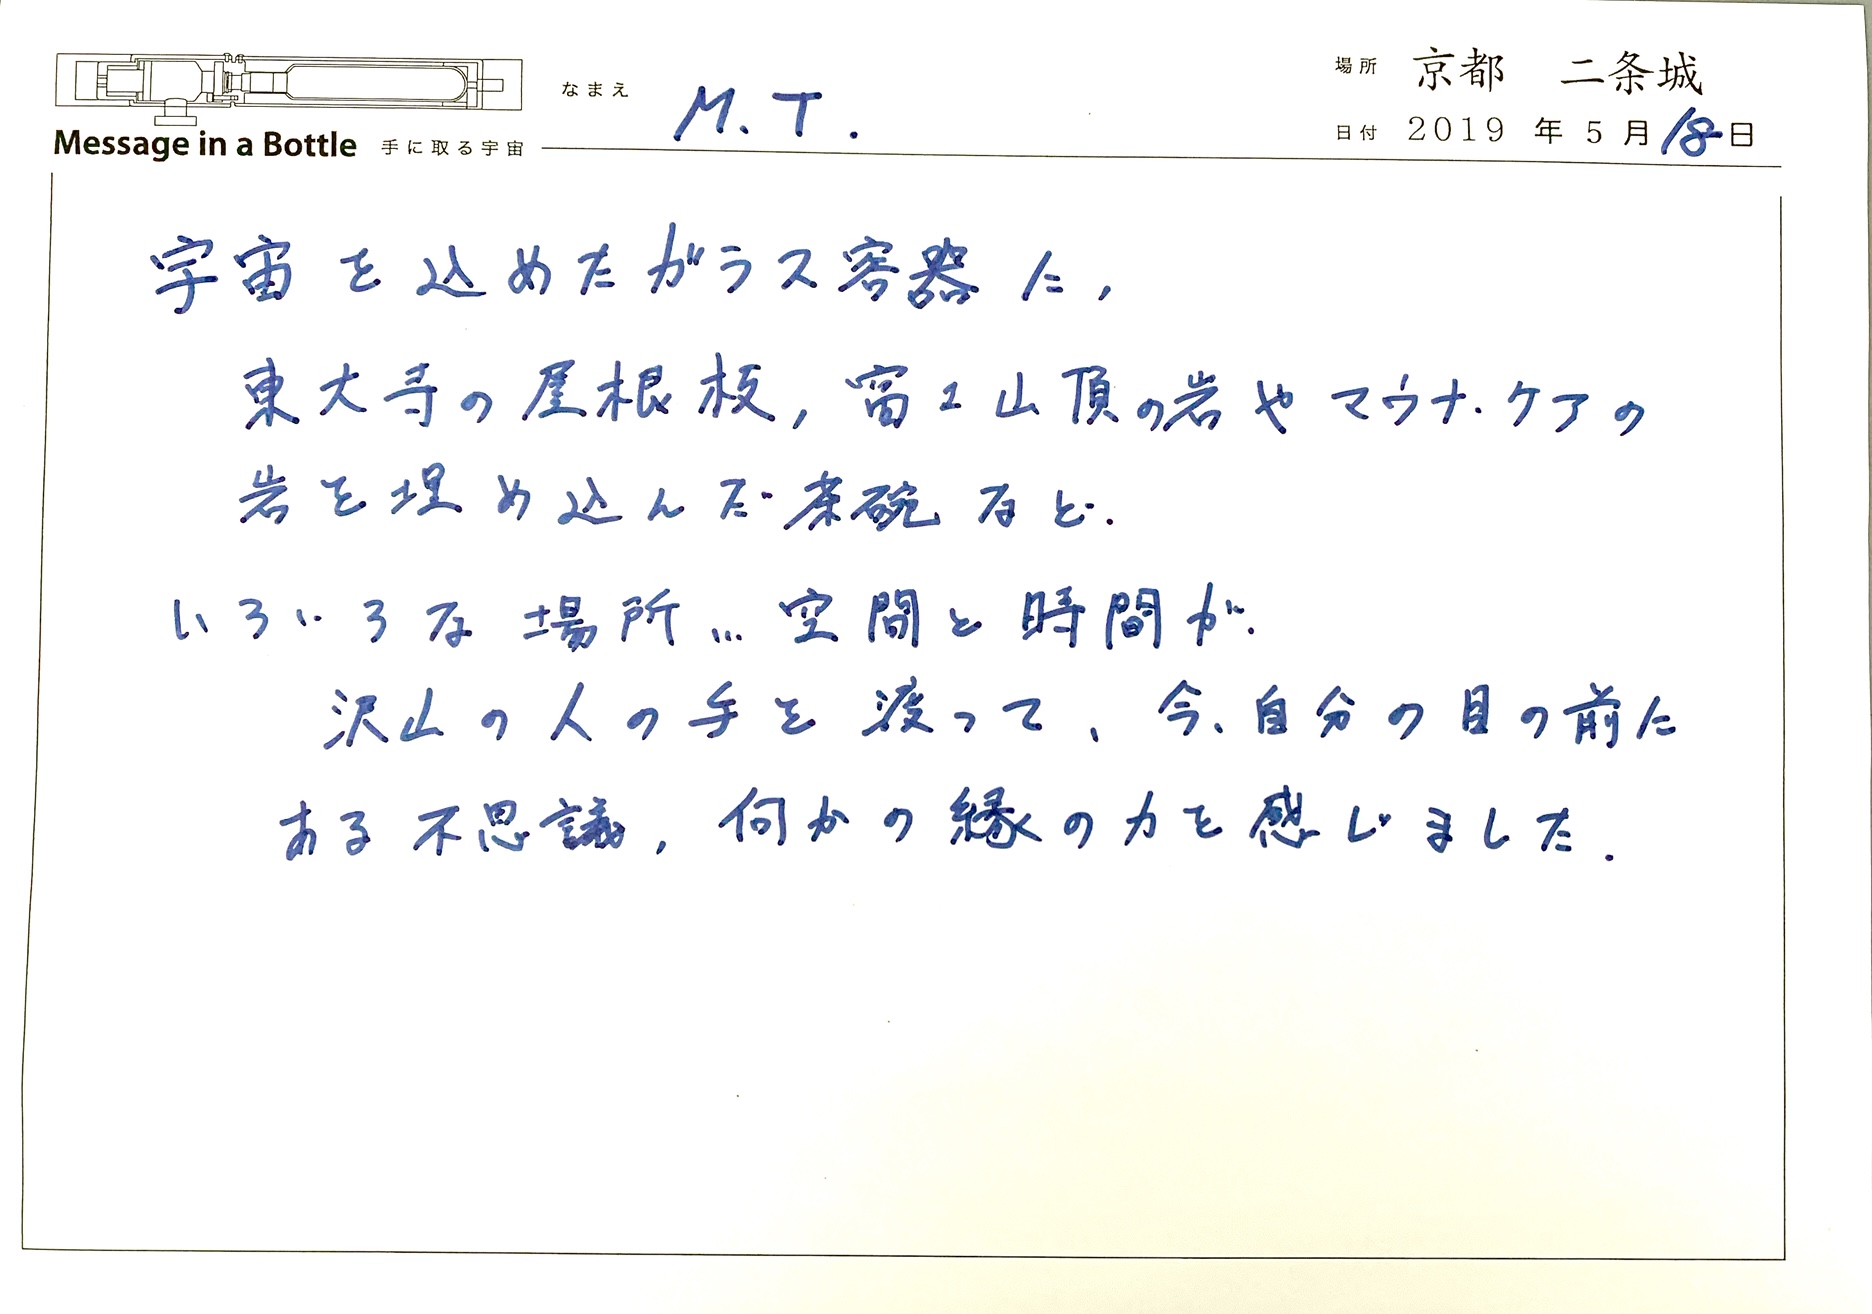 なまえ M.T.
場所 京都 二条城
Message in a Bottle 手に取る宇宙
日付 2019年5月18日
宇宙を込めたガラス容器に,
東大寺の屋根板,富士山頂の岩やマウナ・ケアの
岩を埋め込んだ茶碗など.
いろいろな場所…空間と時間が.
沢山の人の手を渡って、今、自分の目の前に
ある不思議,何かの縁の力を感じました.